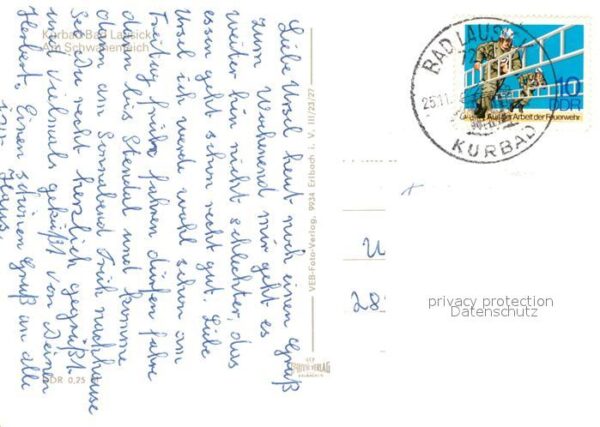 Kurbad Bad Lausick
Am Schwanenteich
Liebe Ursel heut noch einen Gruß
zum Wochenend mir geht es
weiter hin nicht schlechter, das
essen geht schon recht gut. Liebe
Ursel ich werde wohl schon am
Freitag früh fahren dürfen fahre
dann bis Stendal und komme
dann am Sonnabend Früh nachhause
Sei Du recht herzlich gegrüßt
und vielmals geküßt von Deinem
Herbert. Einen schönen Gruß an alle
DDR 0,25
VEB-Foto-Verlag, 9934 Erlbach i. V. III/23/27
BAD LAUSICK
KURBAD
10
DDR
Arbeit der Feuerwehr
U
28
privacy protection
Datenschutz